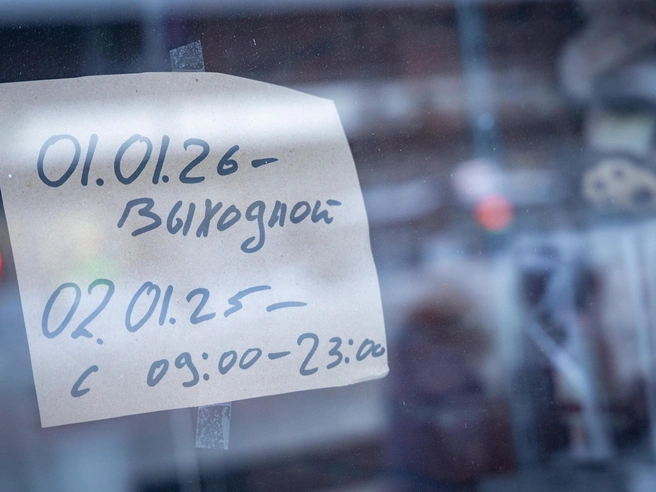 01.01.26-
Выходной
02.01.25-
с 09:00-23:00